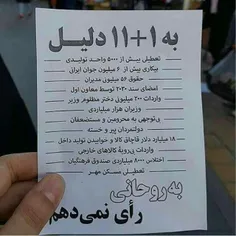 به ۱+۱۱ دلیل
تعطیلی بیش از ۵۰۰۰ واحد تولیدی
بیکاری بیش از ۶ میلیون جوان ایرانی
حقوق ۵۶ میلیون مدیران
امضای سند ۲۰۳۰ توسط معاون اول
واردات ۲۰۰ میلیون دختر مظلوم وزیر
وزیران هزار میلیاردی
بی‌توجهی به محرومین و مستضعفان
دولتمردان پیر و خسته
۱۸ میلیارد دلار قاچاق کالا و خوابیدن تولید داخل
واردات بی‌رویهٔ کالاهای خارجی
اختلاس ۸۰۰۰ میلیاردی صندوق فرهنگیان
تعطیلی مسکن مهر
به روحانی
رأی نمی‌دهم